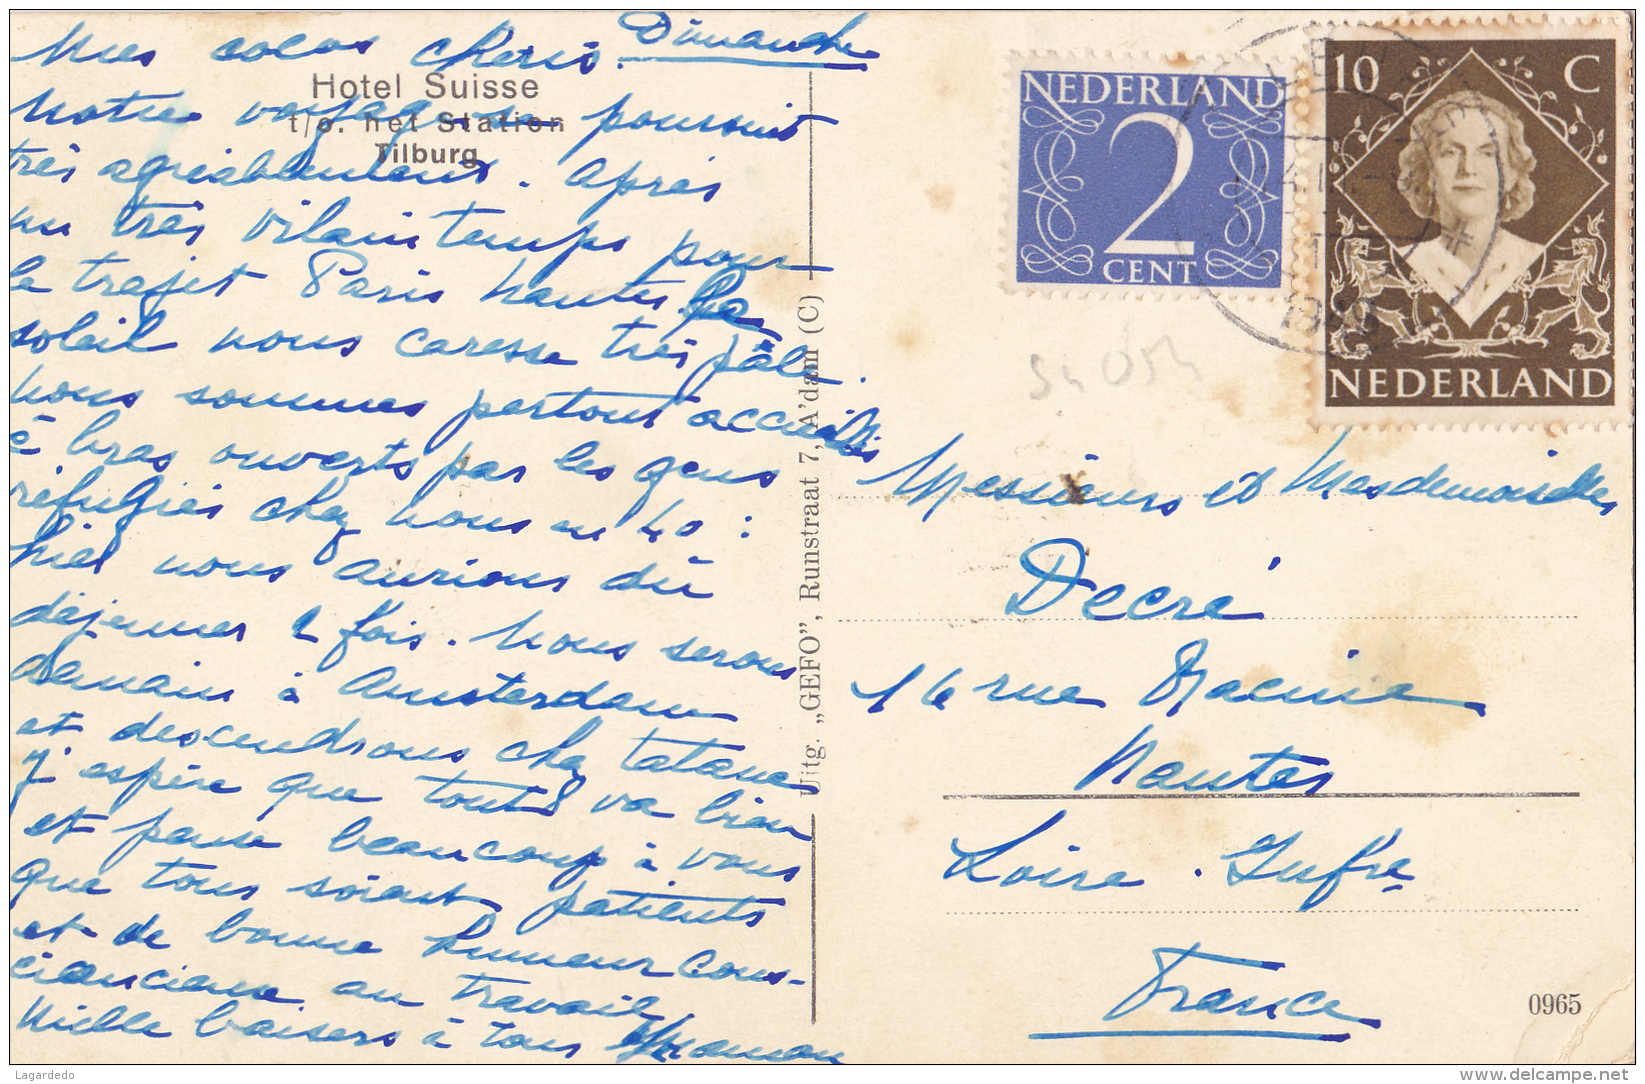 Dimanche
Mes cocos chéris.
Hotel Suisse
t/o. het Station
Tilburg
Notre voyage se poursuit
très agréablement. Après
un très vilain temps pour
le trajet Paris Nantes. Le
soleil nous caresse très pâle.
Nous sommes partout accueillis
à bras ouverts par les gens
réfugiés chez nous en 40 :
hier nous aurions dû
déjeuner 2 fois. Nous serons
demain à Amsterdam
et descendrons chez tatane
J'espère que tout va bien
et pense beaucoup à vous
que tous soient patients
et de bonne humeur cons-
ciencieux au travail
Mille baisers à tous Maman
Uitg. „GEFO”, Runstraat 7, A'dam (C)
NEDERLAND
2
CENT
10 C
NEDERLAND
1950
Messieurs et Mesdemoiselles
Decré
16 rue Racine
Nantes
Loire. Infre
France
0965
Lagardedo
www.delcampe.net